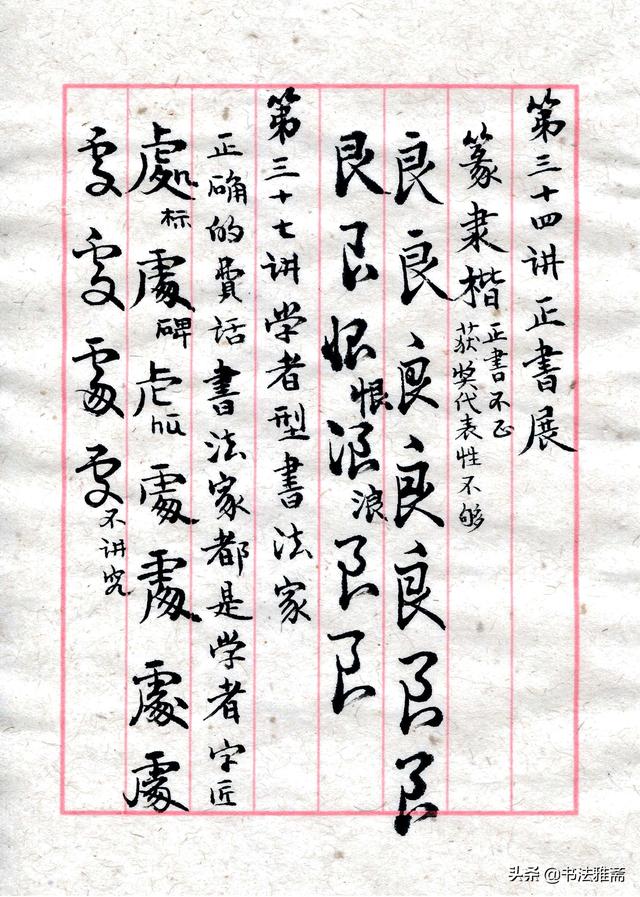 第三十四讲正書展
篆隶楷
正書不正
获奖代表性不够
良良良良良良良
艮艮恨恨浪浪良良
第三十七讲学者型書法家
正确的費话書法家都是学者字匠
處标處碑虍hū處處處處
處處處處不讲究
头条 @书法雅斋